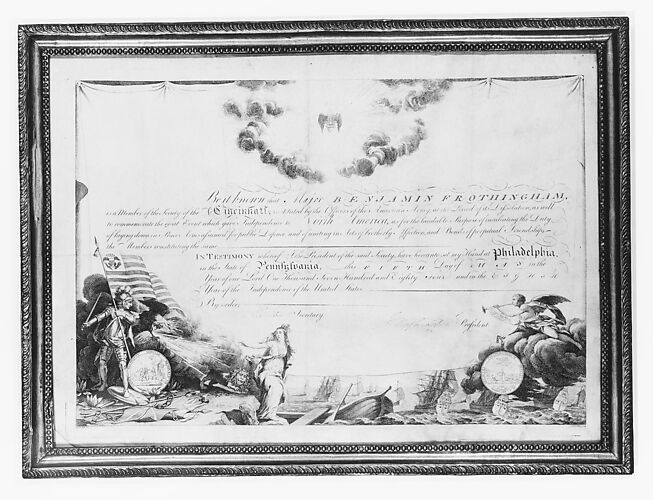 Be it known that Major BENJAMIN FROTHINGHAM,
is a Member of the Society of the Cincinnati, instituted by the Officers of the American Army, at the Period of its Dissolution, as well
to commemorate the great Event which gave Independence to NORTH AMERICA, as for the laudable Purpose of inculcating the Duty
of laying down in Peace Arms assumed for public Defence, and of uniting in Acts of brotherly Affection, and Bonds of perpetual Friendship,
the Members constituting the same.
IN TESTIMONY whereof I, the President of the said Society, have hereunto set my Hand at Philadelphia,
in the State of Pennsylvania, this FIFTH Day of MAY in the
Year of our Lord One Thousand Seven Hundred and Eighty Four and in the EIGHTH
Year of the Independence of the United States.
By order,
Secretary.
President